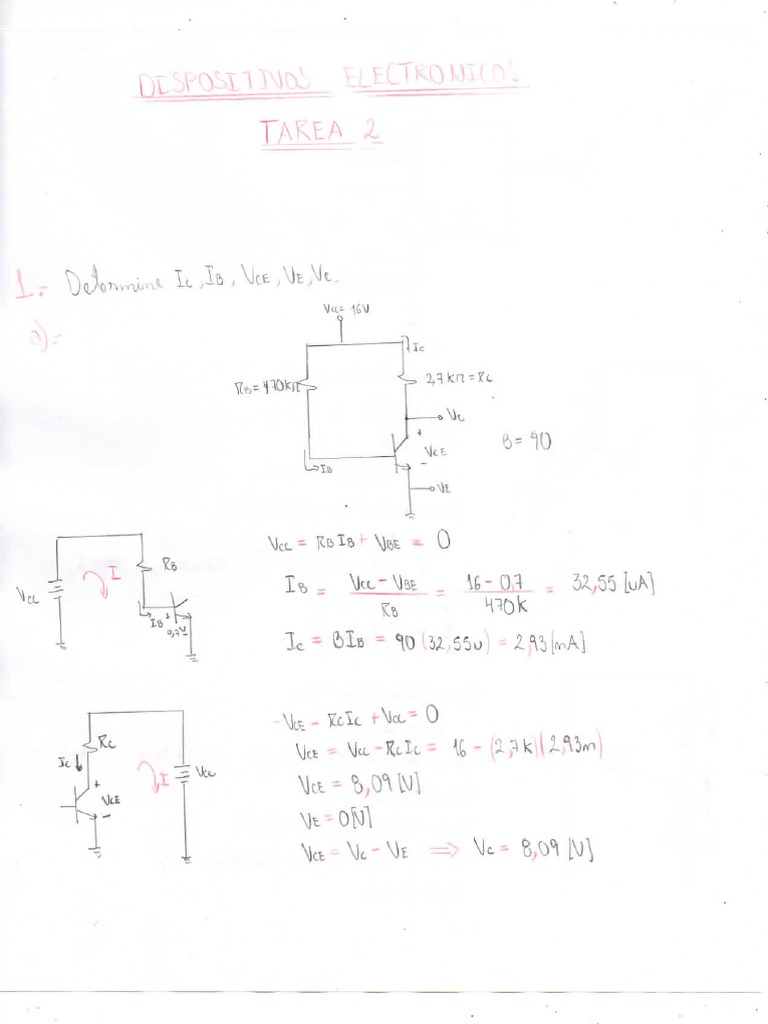 DISPOSITIVOS ELECTRONICOS
TAREA 2
1.- Determine Ic, IB, VCE, VE, Vc.
a)=
Vcc= 16V
Ic
RB=470kΩ
2,7kΩ=Rc
Vc
+
VCE
β=90
-
IB
VE
Vcc = RBIB + VBE = 0
RB
I
Vcc
IB = Vcc - VBE / RB = 16 - 0,7 / 470k = 32,55 [uA]
IB + 0,7V
Ic = βIB = 90 (32,55u) = 2,93[mA]
-VCE - RcIc + Vcc = 0
Rc
Ic
VCE = Vcc - RcIc = 16 - (2,7k)(2,93m)
I
Vcc
+
VCE
-
VCE = 8,09 [V]
VE = 0[V]
VCE = Vc - VE ⇒ Vc = 8,09 [V]